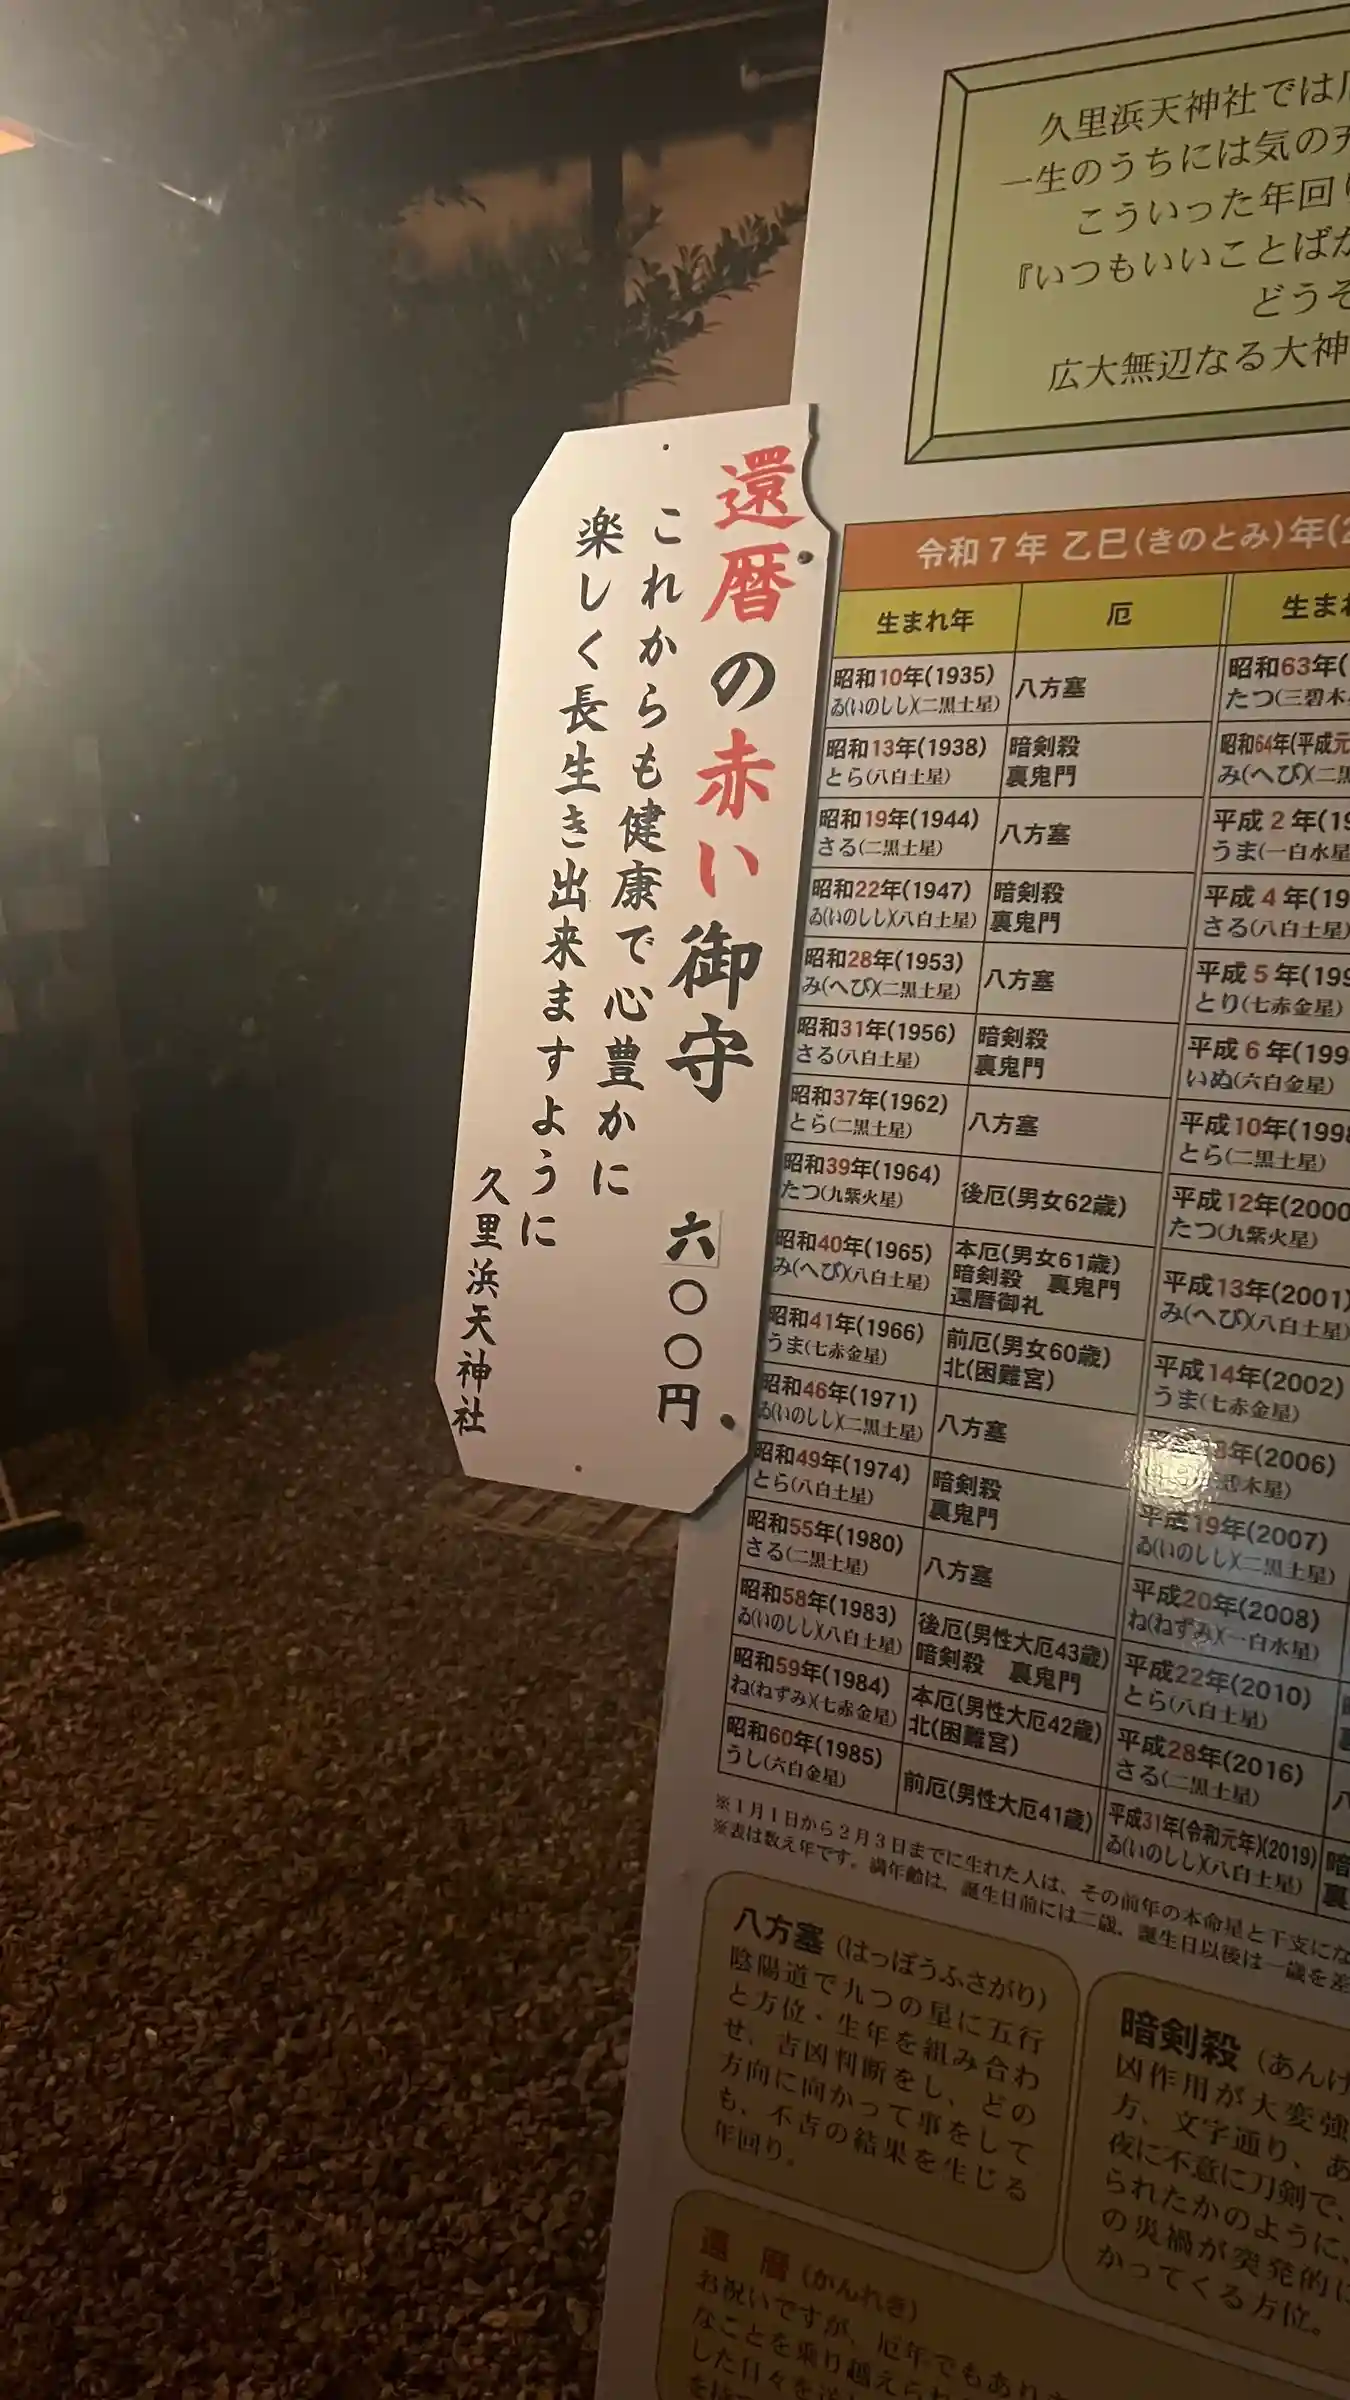 還暦の赤い御守 六〇〇円
これからも健康で心豊かに
楽しく長生き出来ますように
久里浜天神社
久里浜天神社では
一生のうちには気の
こういった年回り
『いつもいいことばか
どうぞ
広大無辺なる大神
令和7年 乙巳(きのとみ)年(2
生まれ年 厄 生まれ
昭和10年(1935) 八方塞 昭和63年(
ゐ(いのしし)(二黒土星) たつ(三碧木
昭和13年(1938) 暗剣殺 昭和64年(平成元
とら(八白土星) 裏鬼門 み(へび)(二黒
昭和19年(1944) 八方塞 平成2年(19
さる(二黒土星) うま(一白水星
昭和22年(1947) 暗剣殺 平成4年(19
ゐ(いのしし)(八白土星) 裏鬼門 さる(八白土星)
昭和28年(1953) 八方塞 平成5年(199
み(へび)(二黒土星) とり(七赤金星)
昭和31年(1956) 暗剣殺 平成6年(199
さる(八白土星) 裏鬼門 いぬ(六白金星)
昭和37年(1962) 八方塞 平成10年(1998
とら(二黒土星) とら(二黒土星)
昭和39年(1964) 後厄(男女62歳) 平成12年(2000
たつ(九紫火星) たつ(九紫火星)
昭和40年(1965) 本厄(男女61歳) 平成13年(2001)
み(へび)(八白土星) 暗剣殺 裏鬼門 み(へび)(八白土星)
還暦御礼
昭和41年(1966) 前厄(男女60歳) 平成14年(2002)
うま(七赤金星) 北(困難宮) うま(七赤金星)
昭和46年(1971) 八方塞 8年(2006)
ゐ(いのしし)(二黒土星) 木星)
昭和49年(1974) 暗剣殺 平成19年(2007)
とら(八白土星) 裏鬼門 ゐ(いのしし)(二黒土星)
昭和55年(1980) 八方塞 平成20年(2008)
さる(二黒土星) ね(ねずみ)(一白水星)
昭和58年(1983) 後厄(男性大厄43歳) 平成22年(2010)
ゐ(いのしし)(八白土星) 暗剣殺 裏鬼門 とら(八白土星)
昭和59年(1984) 本厄(男性大厄42歳) 平成28年(2016)
ね(ねずみ)(七赤金星) 北(困難宮) さる(二黒土星)
昭和60年(1985) 前厄(男性大厄41歳) 平成31年(令和元年)(2019)
うし(六白金星) ゐ(いのしし)(八白土星)
※1月1日から2月3日までに生れた人は、その前年の本命星と干支にな
※表は数え年です。満年齢は、誕生日前には二歳、誕生日以後は一歳を差
八方塞(はっぽうふさがり)
陰陽道で九つの星に五行
と方位・生年を組み合わ
せ、吉凶判断をし、どの
方向に向かって事をして
も、不吉の結果を生じる
年回り。
暗剣殺(あんけ
凶作用が大変強
方、文字通り、
夜に不意に刀剣で、
られたかのように、
の災禍が突発的に
かってくる方位。
還暦(かんれき)
お祝いですが、厄年でもあり
なことを乗り越えられ
した日々を